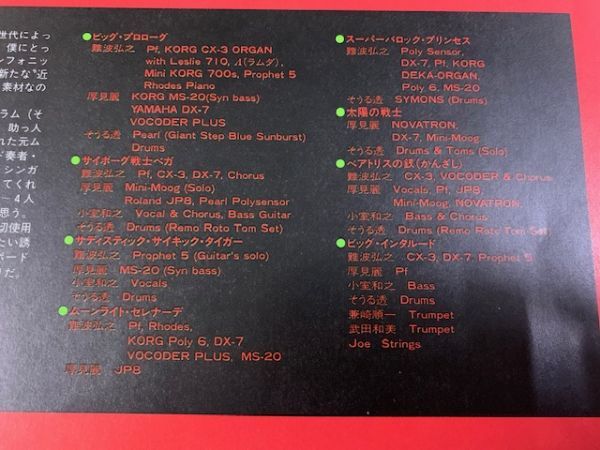 世代によっ
僕にとっ
ンフォニッ
新たな“近
素材なの
ラム（そ
助っ人
れた元ム
ド奏者・
シンガ
てくれ
〜４人
思う。
切使用
たい誘
ボード
りだ。
●ビッグ・プロローグ
難波弘之 Pf, KORG CX-3 ORGAN
with Leslie 710, Λ(ラムダ),
Mini KORG 700s, Prophet 5
Rhodes Piano
厚見麗 KORG MS-20(Syn bass)
YAMAHA DX-7
VOCODER PLUS
そうる透 Pearl (Giant Step Blue Sunburst)
Drums
●サイボーグ戦士ベガ
難波弘之 Pf, CX-3, DX-7, Chorus
厚見麗 Mini-Moog (Solo)
Roland JP8, Pearl Polysensor
小室和之 Vocal & Chorus, Bass Guitar
そうる透 Drums (Remo Roto Tom Set)
●サディスティック・サイキック・タイガー
難波弘之 Prophet 5 (Guitar's solo)
厚見麗 MS-20 (Syn bass)
小室和之 Vocals,
そうる透 Drums
●ムーンライト・セレナーデ
難波弘之 Pf, Rhodes,
KORG Poly 6, DX-7
VOCODER PLUS, MS-20
厚見麗 JP8
●スーパーバロック・プリンセス
難波弘之 Poly Sensor,
DX-7, Pf, KORG
DEKA-ORGAN,
Poly 6, MS-20
そうる透 SYMONS (Drums)
●太陽の戦士
厚見麗 NOVATRON,
DX-7, Mini-Moog
そうる透 Drums & Toms (Solo)
●ベアトリスの釵(かんざし)
難波弘之 CX-3, VOCODER & Chorus
厚見麗 Vocals, Pf, JP8,
Mini-Moog, NOVATRON,
小室和之 Bass & Chorus
そうる透 Drums (Remo Roto Tom Set)
●ビッグ・インタルード
難波弘之 CX-3, DX-7, Prophet 5
厚見麗 Pf
小室和之 Bass
そうる透 Drums
兼崎順一 Trumpet
武田和美 Trumpet
Joe Strings